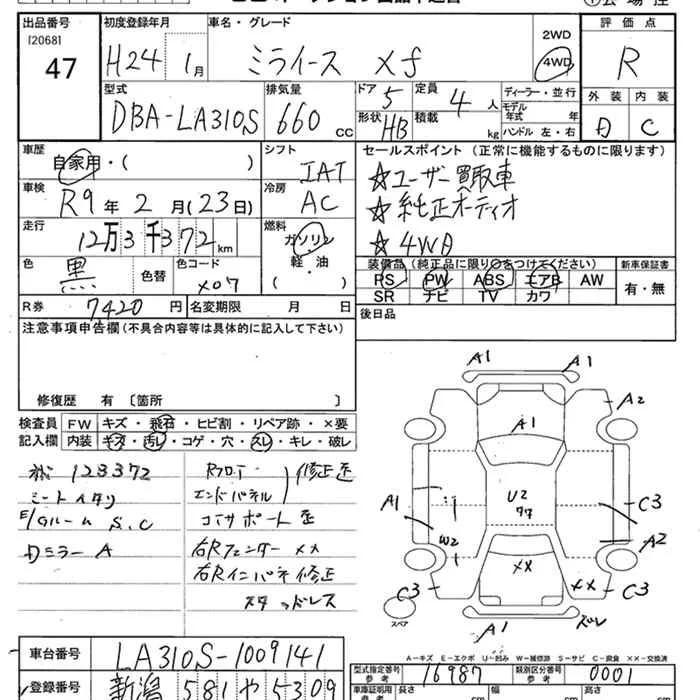 出品番号 初度登録年月 車名・グレード 評価点
[2068]
47 H24 1月 ミライース Xf 2WD 4WD R
型式 排気量 ドア 5 定員 4人 ディーラー・並行 外装 内装
モデル年式 年
DBA-LA310S 660cc 形状 HB 積載 kg ハンドル 左・右 C
車歴 シフト セールスポイント (正常に機能するものに限ります)
自家用・( ) IAT ☆ユーザー買取車
車検 冷房 ☆純正オーディオ
R9年 2月(23日) AC
走行 燃料 ☆4WD
12万3千372km ガソリン
軽・油
( )
色 黒 色替 色コード X07
装備品 (純正品に限り○をつけてください) 新車保証書
PS PW ABS エアB AW 有・無
SR ナビ TV カワ
R券 7420円 名変期限 月 日 後日品
注意事項申告欄(不具合内容等は具体的に記入して下さい)
修復歴 有 〔箇所 〕
検査員 FW キズ・飛石・ヒビ割・リペア跡・×要
記入欄 内装 キズ・汚レ・コゲ・穴・スレ・キレ・破レ
123372 Rフロアー 修正歪
シートヘタリ エンドパネル
E/Gルーム S.C コアサポート歪
Dミラー A 右Rフェンダー ××
右Rインパネ修正
スタッドレス
A1 A1
A2
A1
A1 U2 C3
A2
W2
C3 ×× ×× C3
スペア A1 ズレ
A-キズ E-エクボ U-凹み W-補修跡 S-サビ C-腐食 XX-交換済
車台番号 LA310S-1009141
登録番号 新潟 581 や 5309
型式指定番号 参考 16987 類別区分番号 参考 0001
車庫証明用 参考 長さ cm 幅 cm 高さ cm